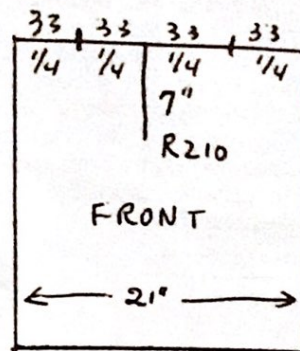 33 33 33 33
1/4 1/4 1/4 1/4
7"
R210
FRONT
21"